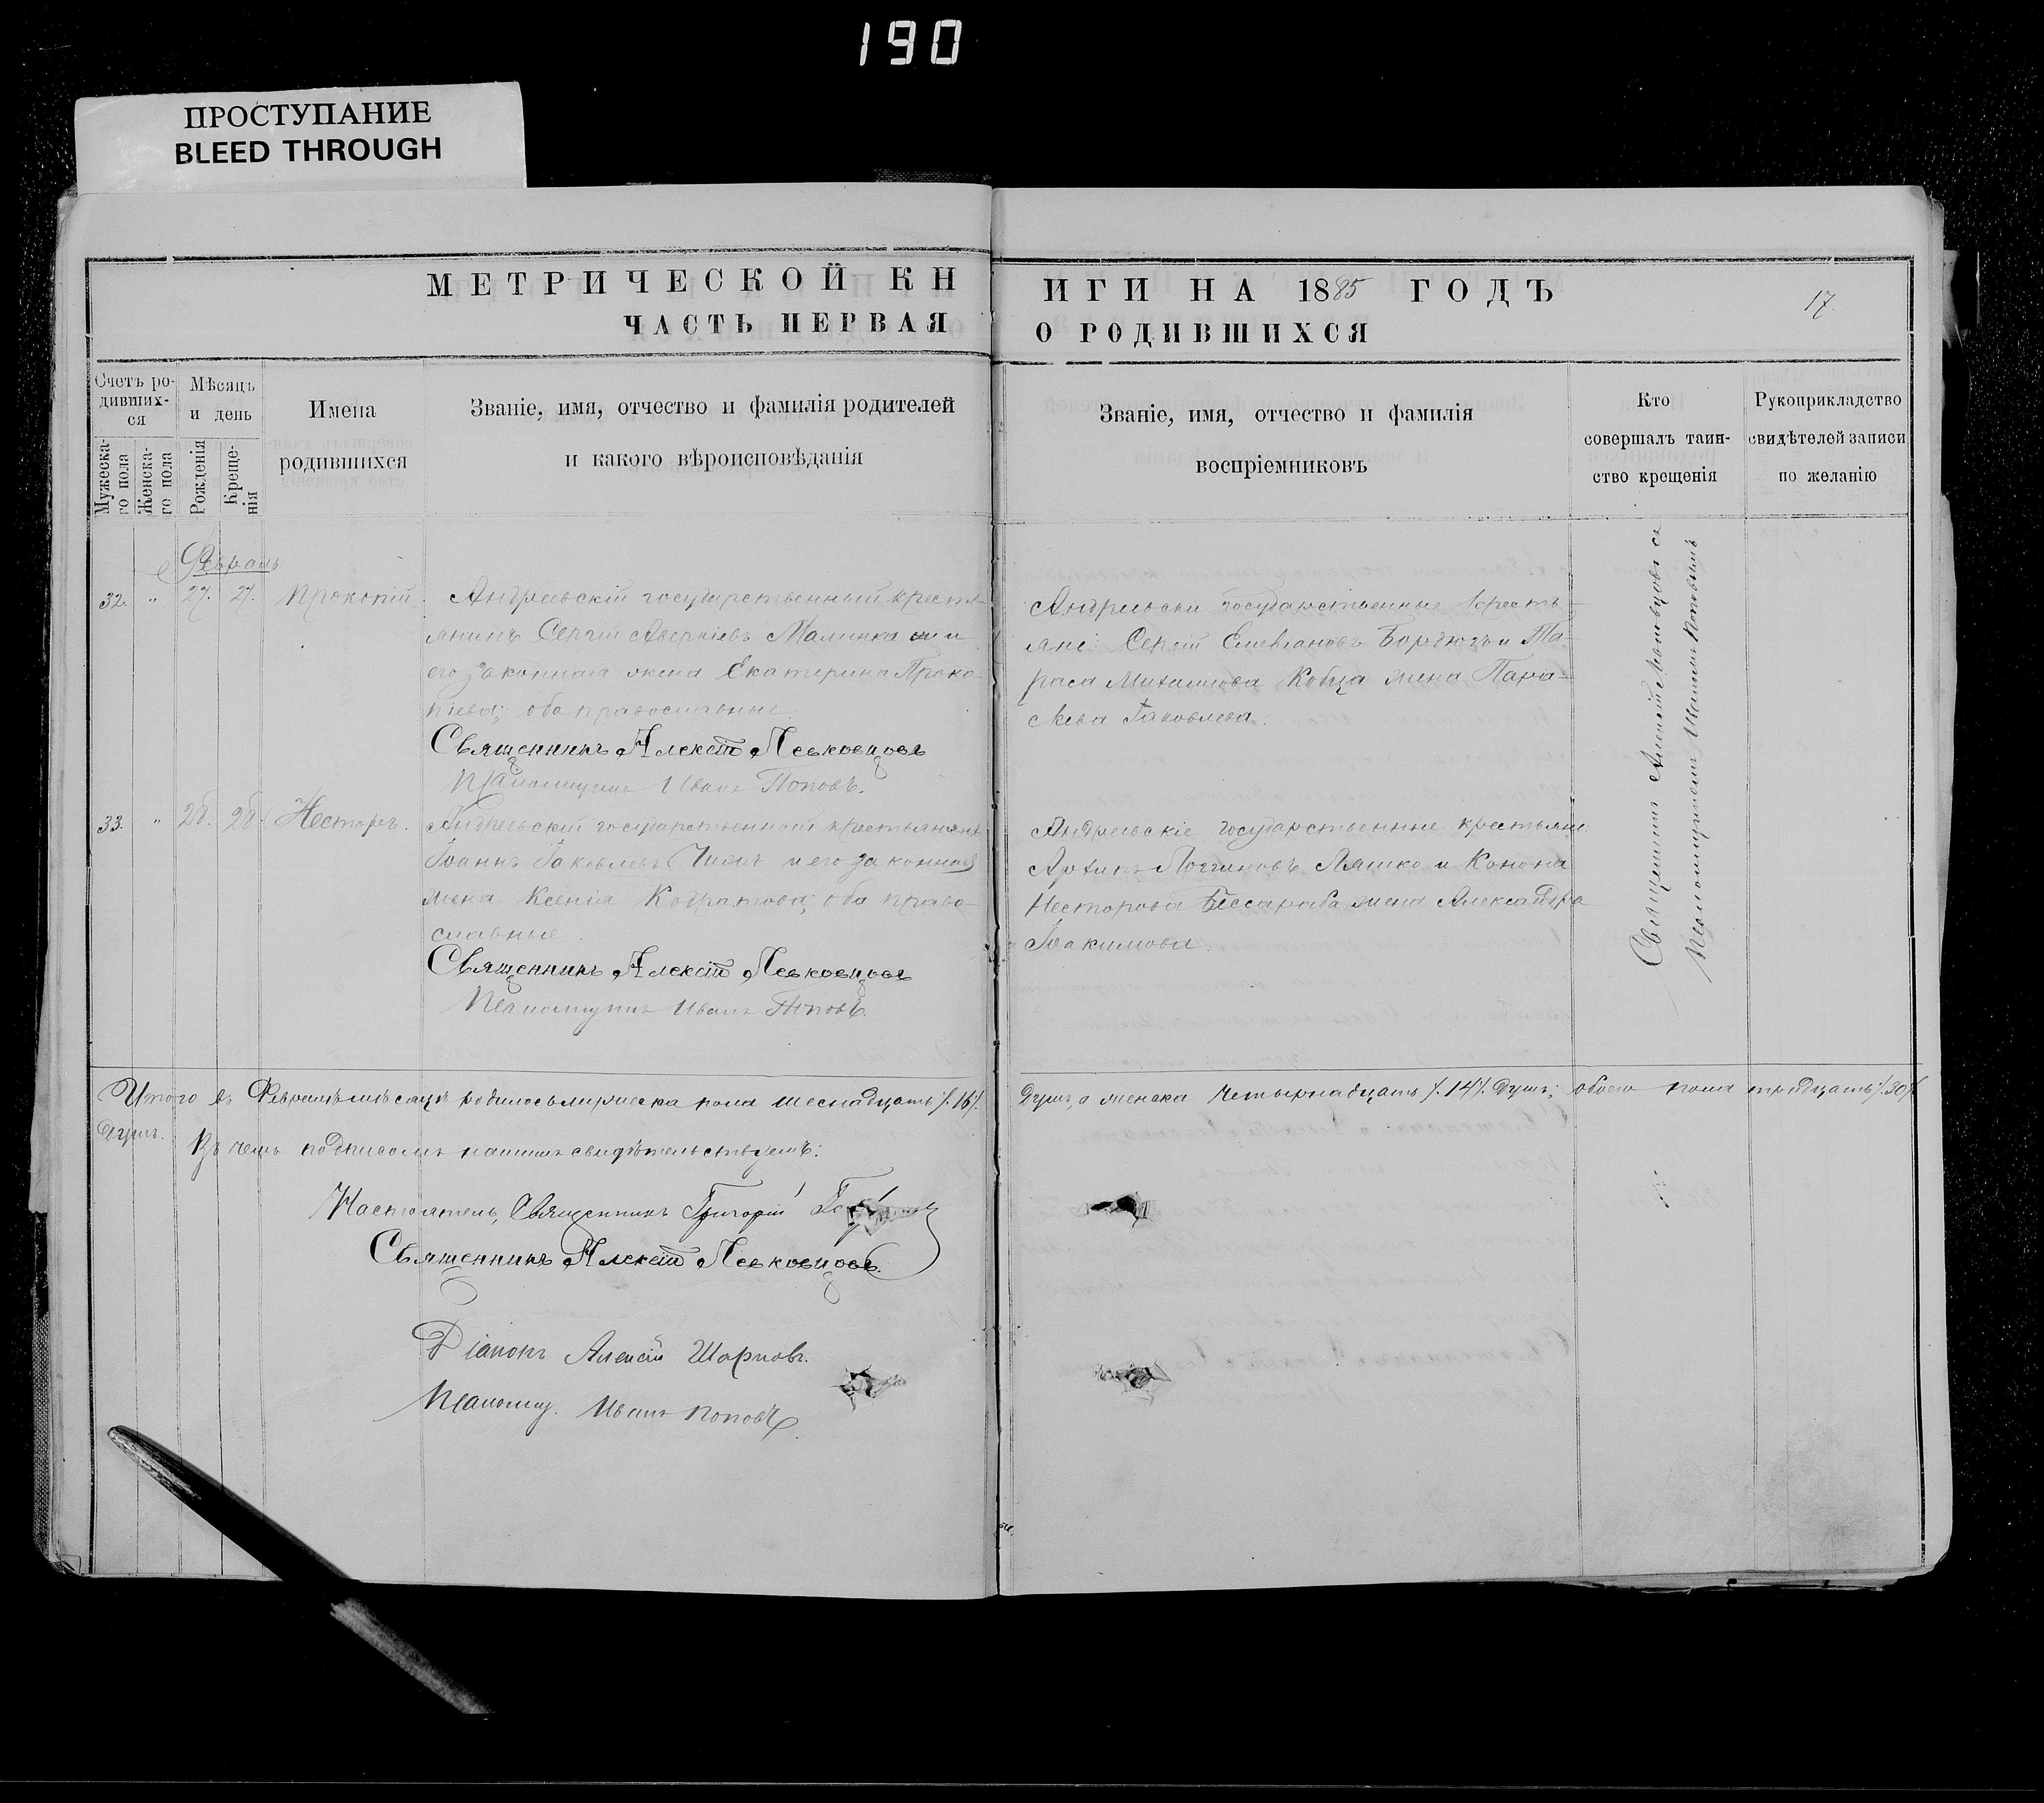 190
ПРОСТУПАНИЕ
BLEED THROUGH
МЕТРИЧЕСКОЙ КНИГИ НА 1885 ГОДЪ
17.
ЧАСТЬ ПЕРВАЯ О РОДИВШИХСЯ
Счетъ ро-
дивших-
ся
Мужеска-
го пола
Женска-
го пола
Мѣсяцъ
и день
Рожденія
Креще-
нія
Имена
родившихся
Званіе, имя, отчество и фамилія родителей
и какого вѣроисповѣданія
Званіе, имя, отчество и фамилія
воспріемниковъ
Кто
совершалъ таин-
ство крещенія
Рукоприкладство
свидѣтелей записи
по желанію
Февраль
32. " 27. 27. Прокопій.
Андреевскій государственный кресть-
янинъ Сергій Аверкіевъ Малинка и
его законная жена Екатерина Проко-
піева; оба православные.
Священникъ Алексій Левковцовъ
Псаломщикъ Иванъ Поповъ.
Андреевски государственные кресть-
яне: Сергій Бордюгъ и Та-
раса Михаилова Кобца жена Пара-
скева Іаковлева.
33. " 28. 28. Несторъ.
Андреевскій государственный крестьянинъ
Іоаннъ Іаковлевъ и его законная
жена Ксенія Кодратова; оба право-
славные.
Священникъ Алексій Левковцовъ
Псаломщикъ Иванъ Поповъ.
Андреевскіе государственные крестьяне:
Логгиновъ Ляшко и Конона
Несторова Бессараба жена Александра
Іоакимова.
Священникъ Алексій Левковцовъ съ
Псаломщикомъ Иваномъ Поповымъ
Итого въ Февралѣ мѣсяцѣ родилось мужеска пола шеснадцать /.16/. Душъ, а женска четырнадцать /.14/. Душъ; обоего пола тридцать /.30/.
душъ.
Въ чемъ подписомъ нашимъ свидѣтельствуемъ:
Настоятель, Священникъ Григорій
Священникъ Алексій Левковцовъ.
Діаконъ Алексій Шарповъ.
Псаломщ. Иванъ Поповъ